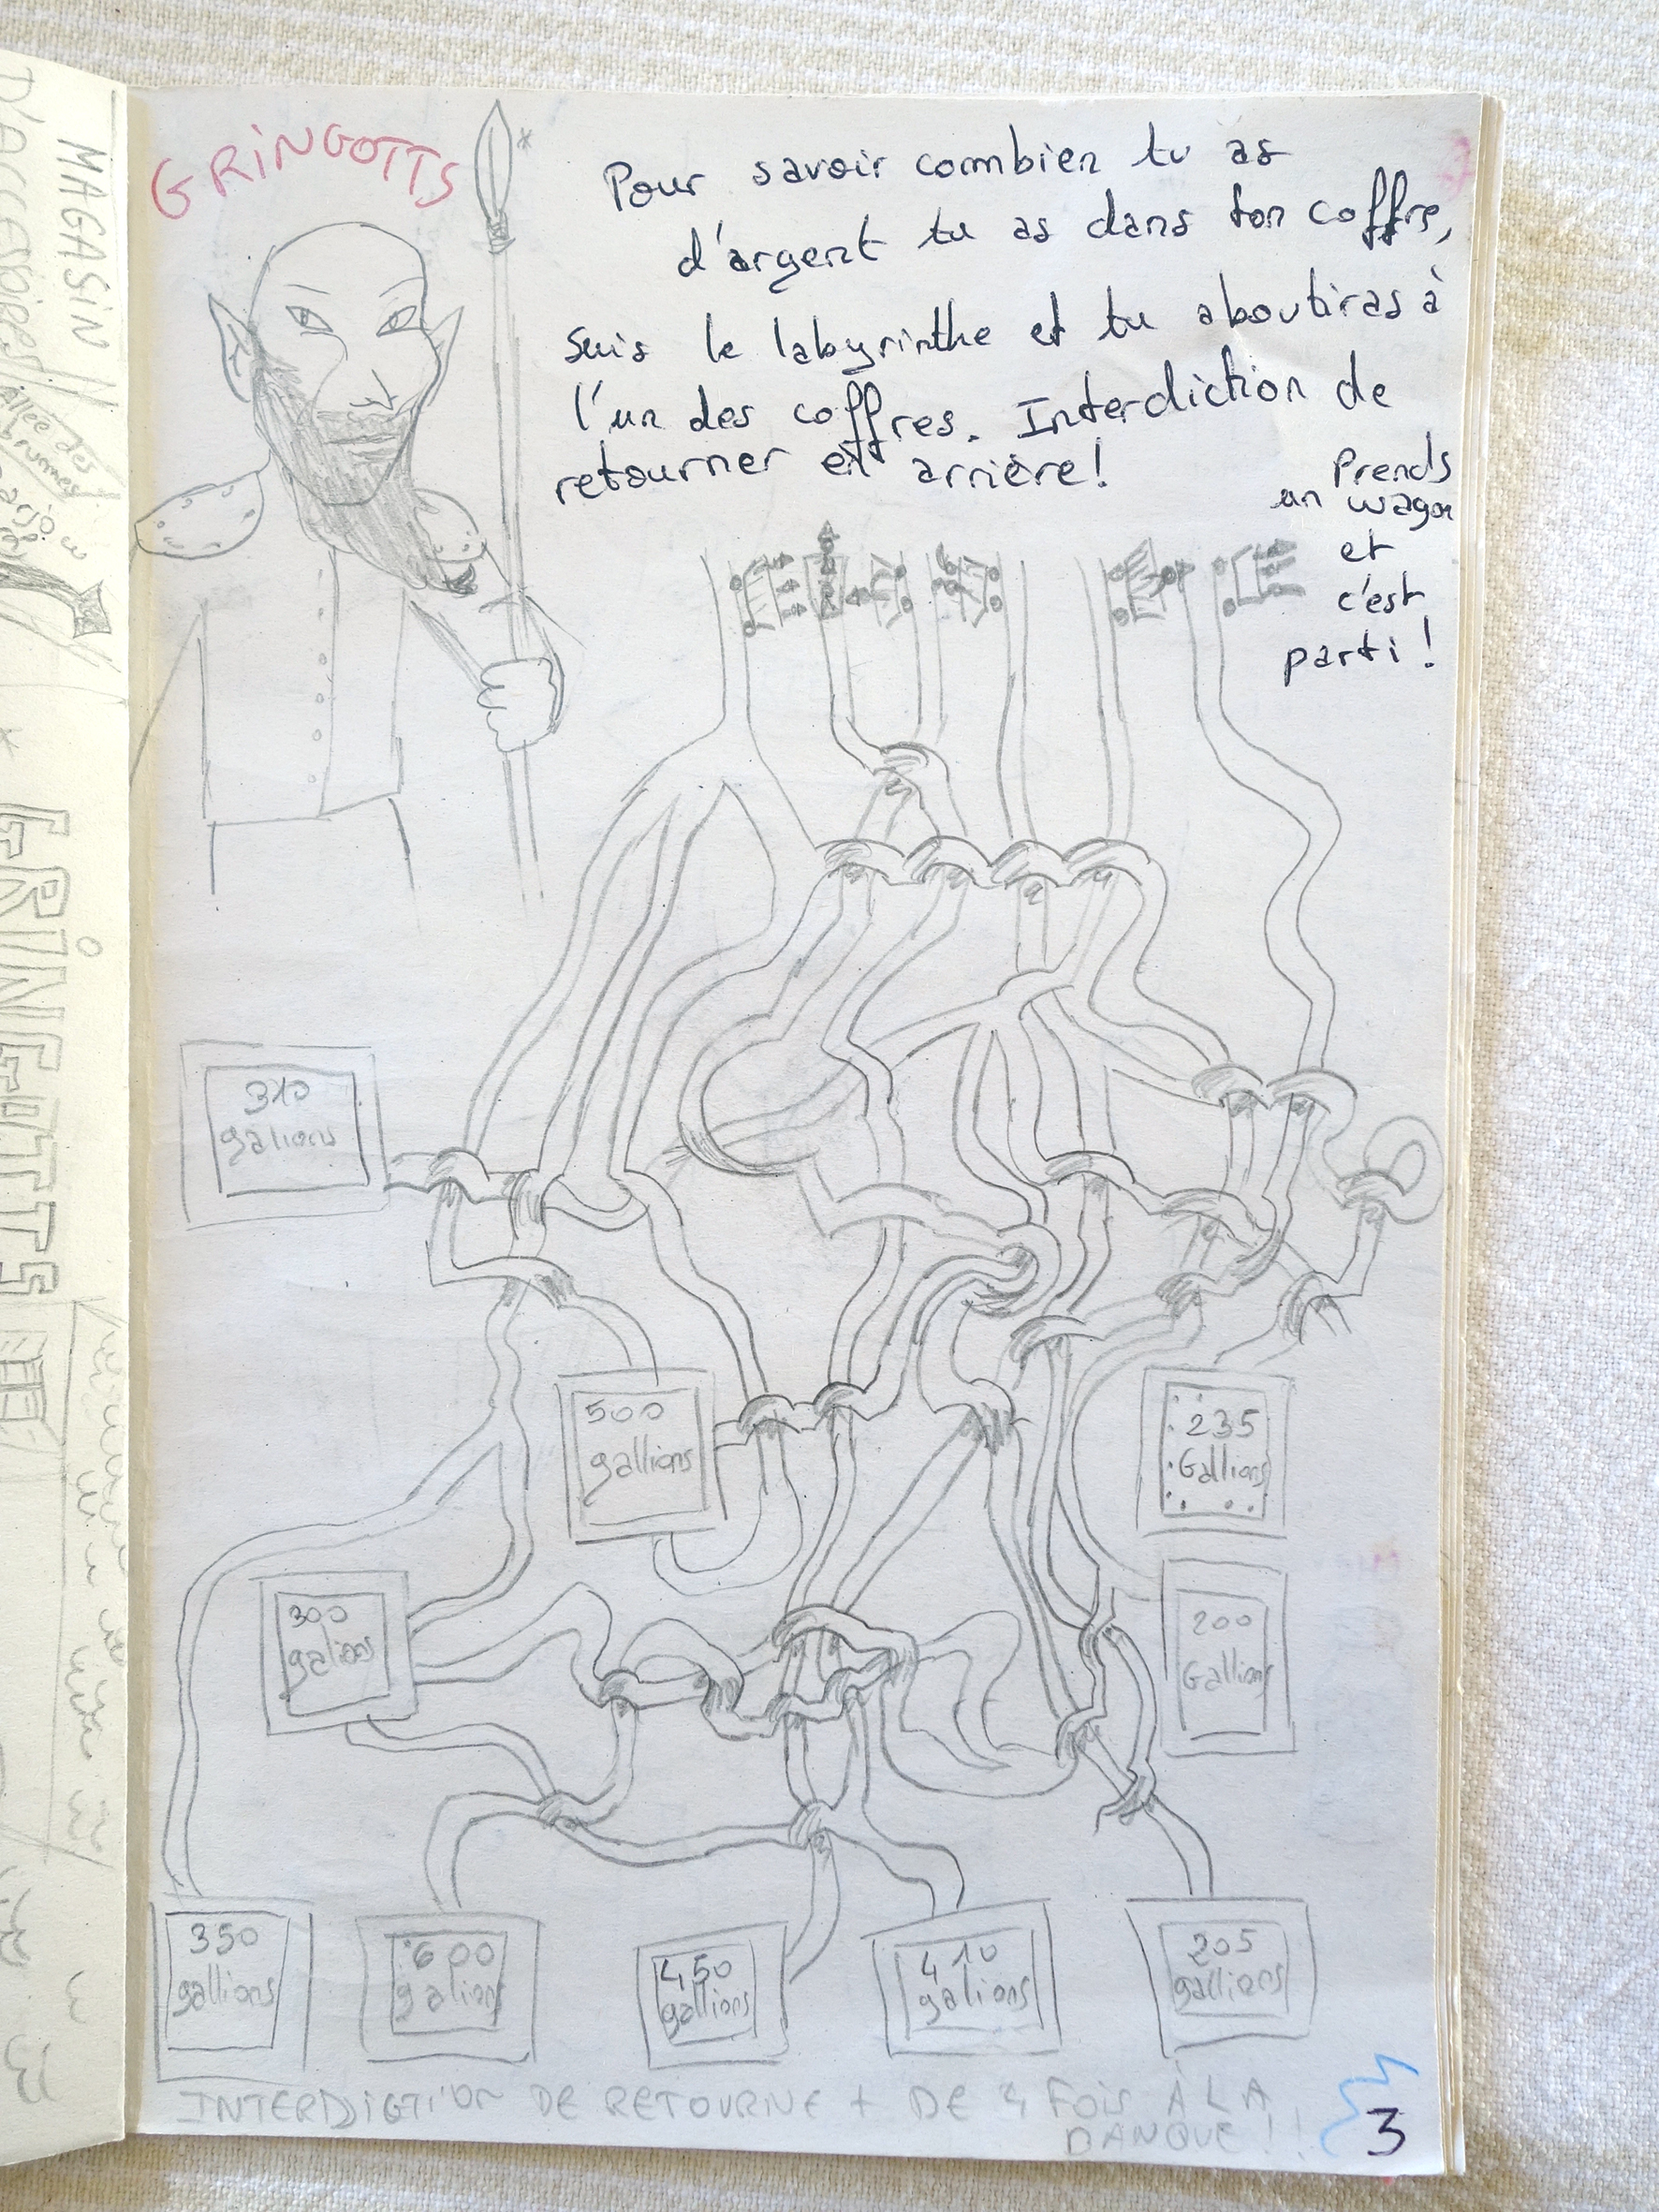 GRINGOTTS
*
Pour savoir commbien tu as
d'argent tu as dans ton coffre,
suis le labyrinthe et tu aboutiras à
l'un des coffres. Interdiction de
retourner en arrière!
Prends
un wagon
et
c'est
parti!
310
galions
500
gallions
235
Gallions
300
galions
200
Gallions
350
gallions
600
galions
450
gallions
410
galions
205
gallions
INTERDICTION DE RETOURNE + DE 4 FOIS À LA
BANQUE!!
3
MAGASIN
D'ACCESSOIRES
Allée des
brumes
*
GRINGOTTS